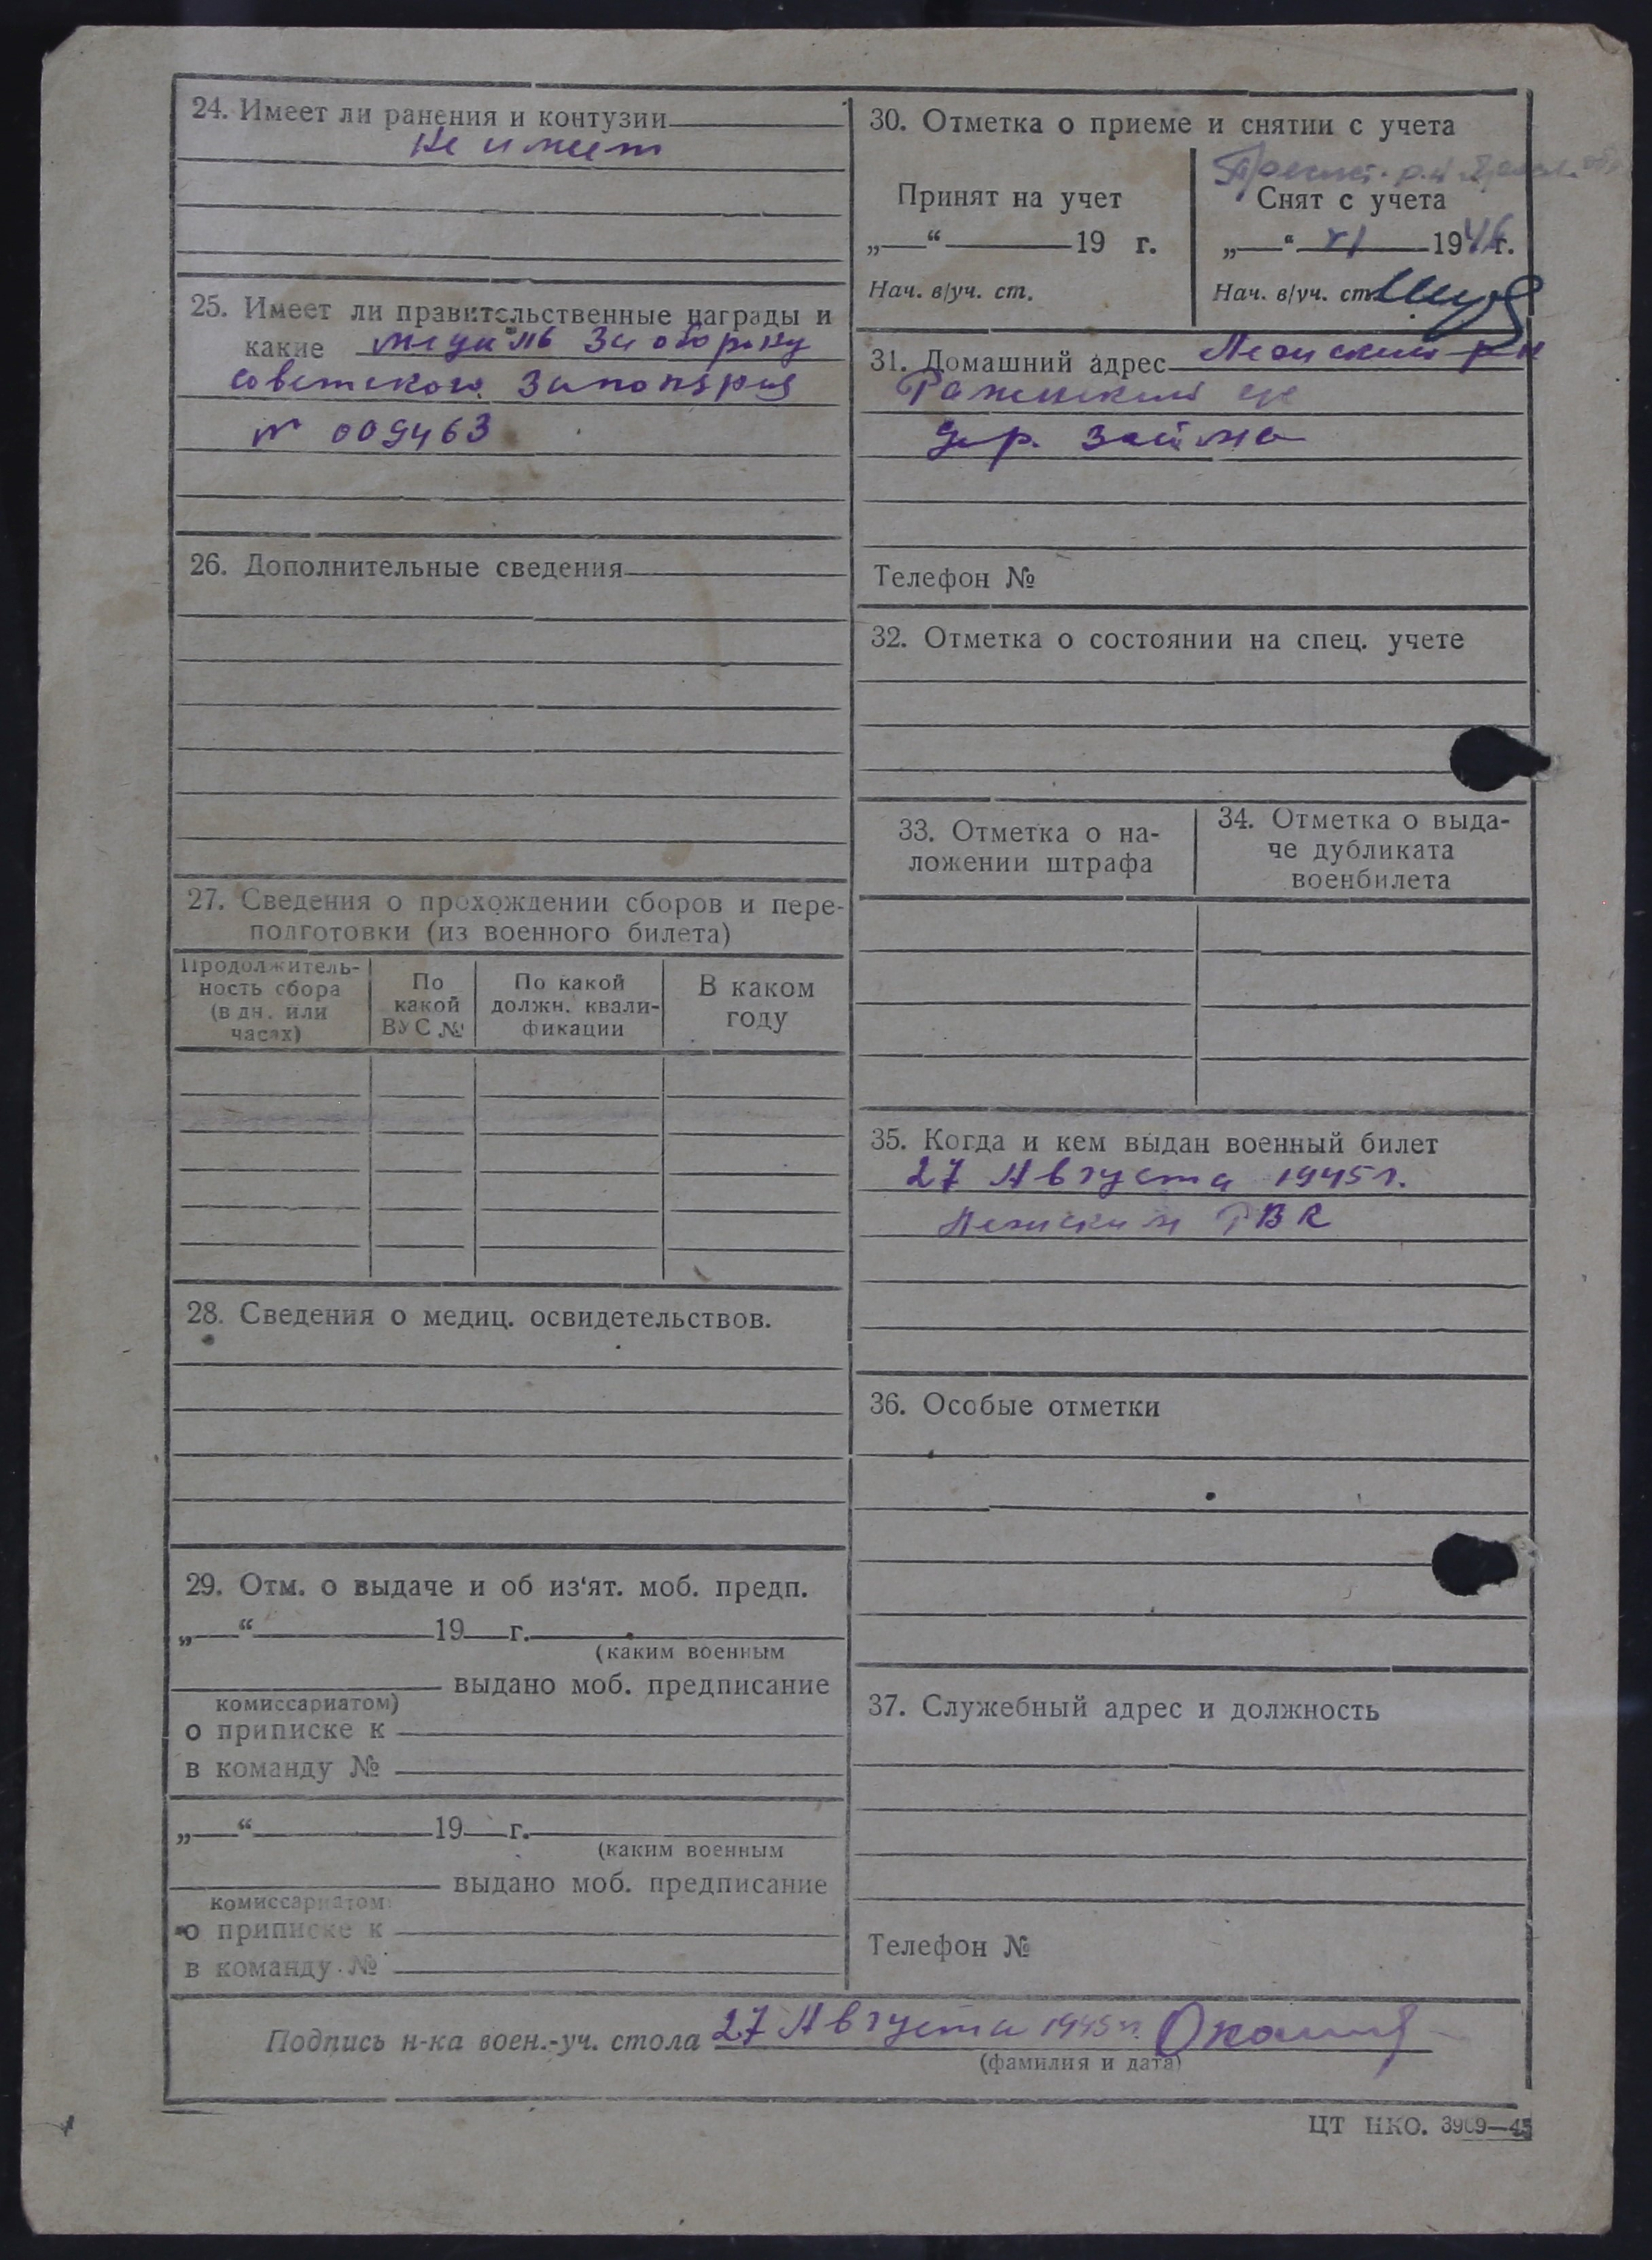 24. Имеет ли ранения и контузии
Не имеет
25. Имеет ли правительственные награды и
какие медаль За оборону
советского Заполярия
№ 009463
26. Дополнительные сведения
27. Сведения о прохождении сборов и пере-
подготовки (из военного билета)
Продолжитель-
ность сбора
(в дн. или
часах)
По
какой
ВУС №
По какой
должн. квали-
фикации
В каком
году
28. Сведения о медиц. освидетельствов.
29. Отм. о выдаче и об из'ят. моб. предп.
„ “ 19 г.
(каким военным
выдано моб. предписание
комиссариатом)
о приписке к
в команду №
„ “ 19 г.
(каким военным
выдано моб. предписание
комиссариатом)
о приписке к
в команду №
30. Отметка о приеме и снятии с учета
Принят на учет
„ “ 19 г.
Нач. в/уч. ст.
Снят с учета
„ “ XI 1946 г.
Нач. в/уч. ст.
31. Домашний адрес р-н
дер. Займа
Телефон №
32. Отметка о состоянии на спец. учете
33. Отметка о на-
ложении штрафа
34. Отметка о выда-
че дубликата
военбилета
35. Когда и кем выдан военный билет
27 Августа 1945 г.
РВК
36. Особые отметки
37. Служебный адрес и должность
Телефон №
Подпись н-ка воен.-уч. стола 27 Августа 1945 г.
(фамилия и дата)
ЦТ НКО. 3909—45